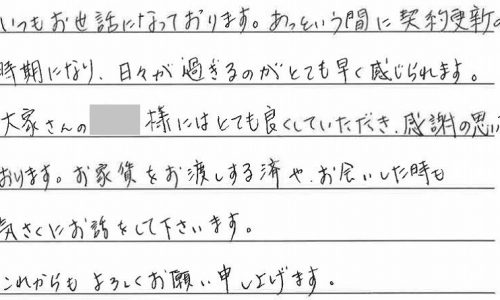 いつもお世話になっております。あっという間に契約更新の
時期になり、日々が過ぎるのがとても早く感じられます。
大家さんの 様にはとても良くしていただき、感謝の思い
おります。お家賃をお渡しする済や、お会いした時も
気さくにお話をして下さいます。
これからもよろしくお願い申し上げます。